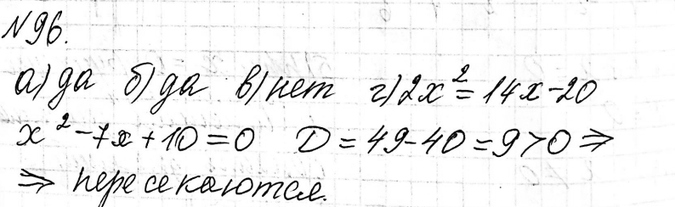 N96.
а) да б) да в) нет г) 2x² = 14x-20
x² - 7x + 10 = 0 D = 49-40 = 9 > 0 ⇒
⇒ пересекаются.